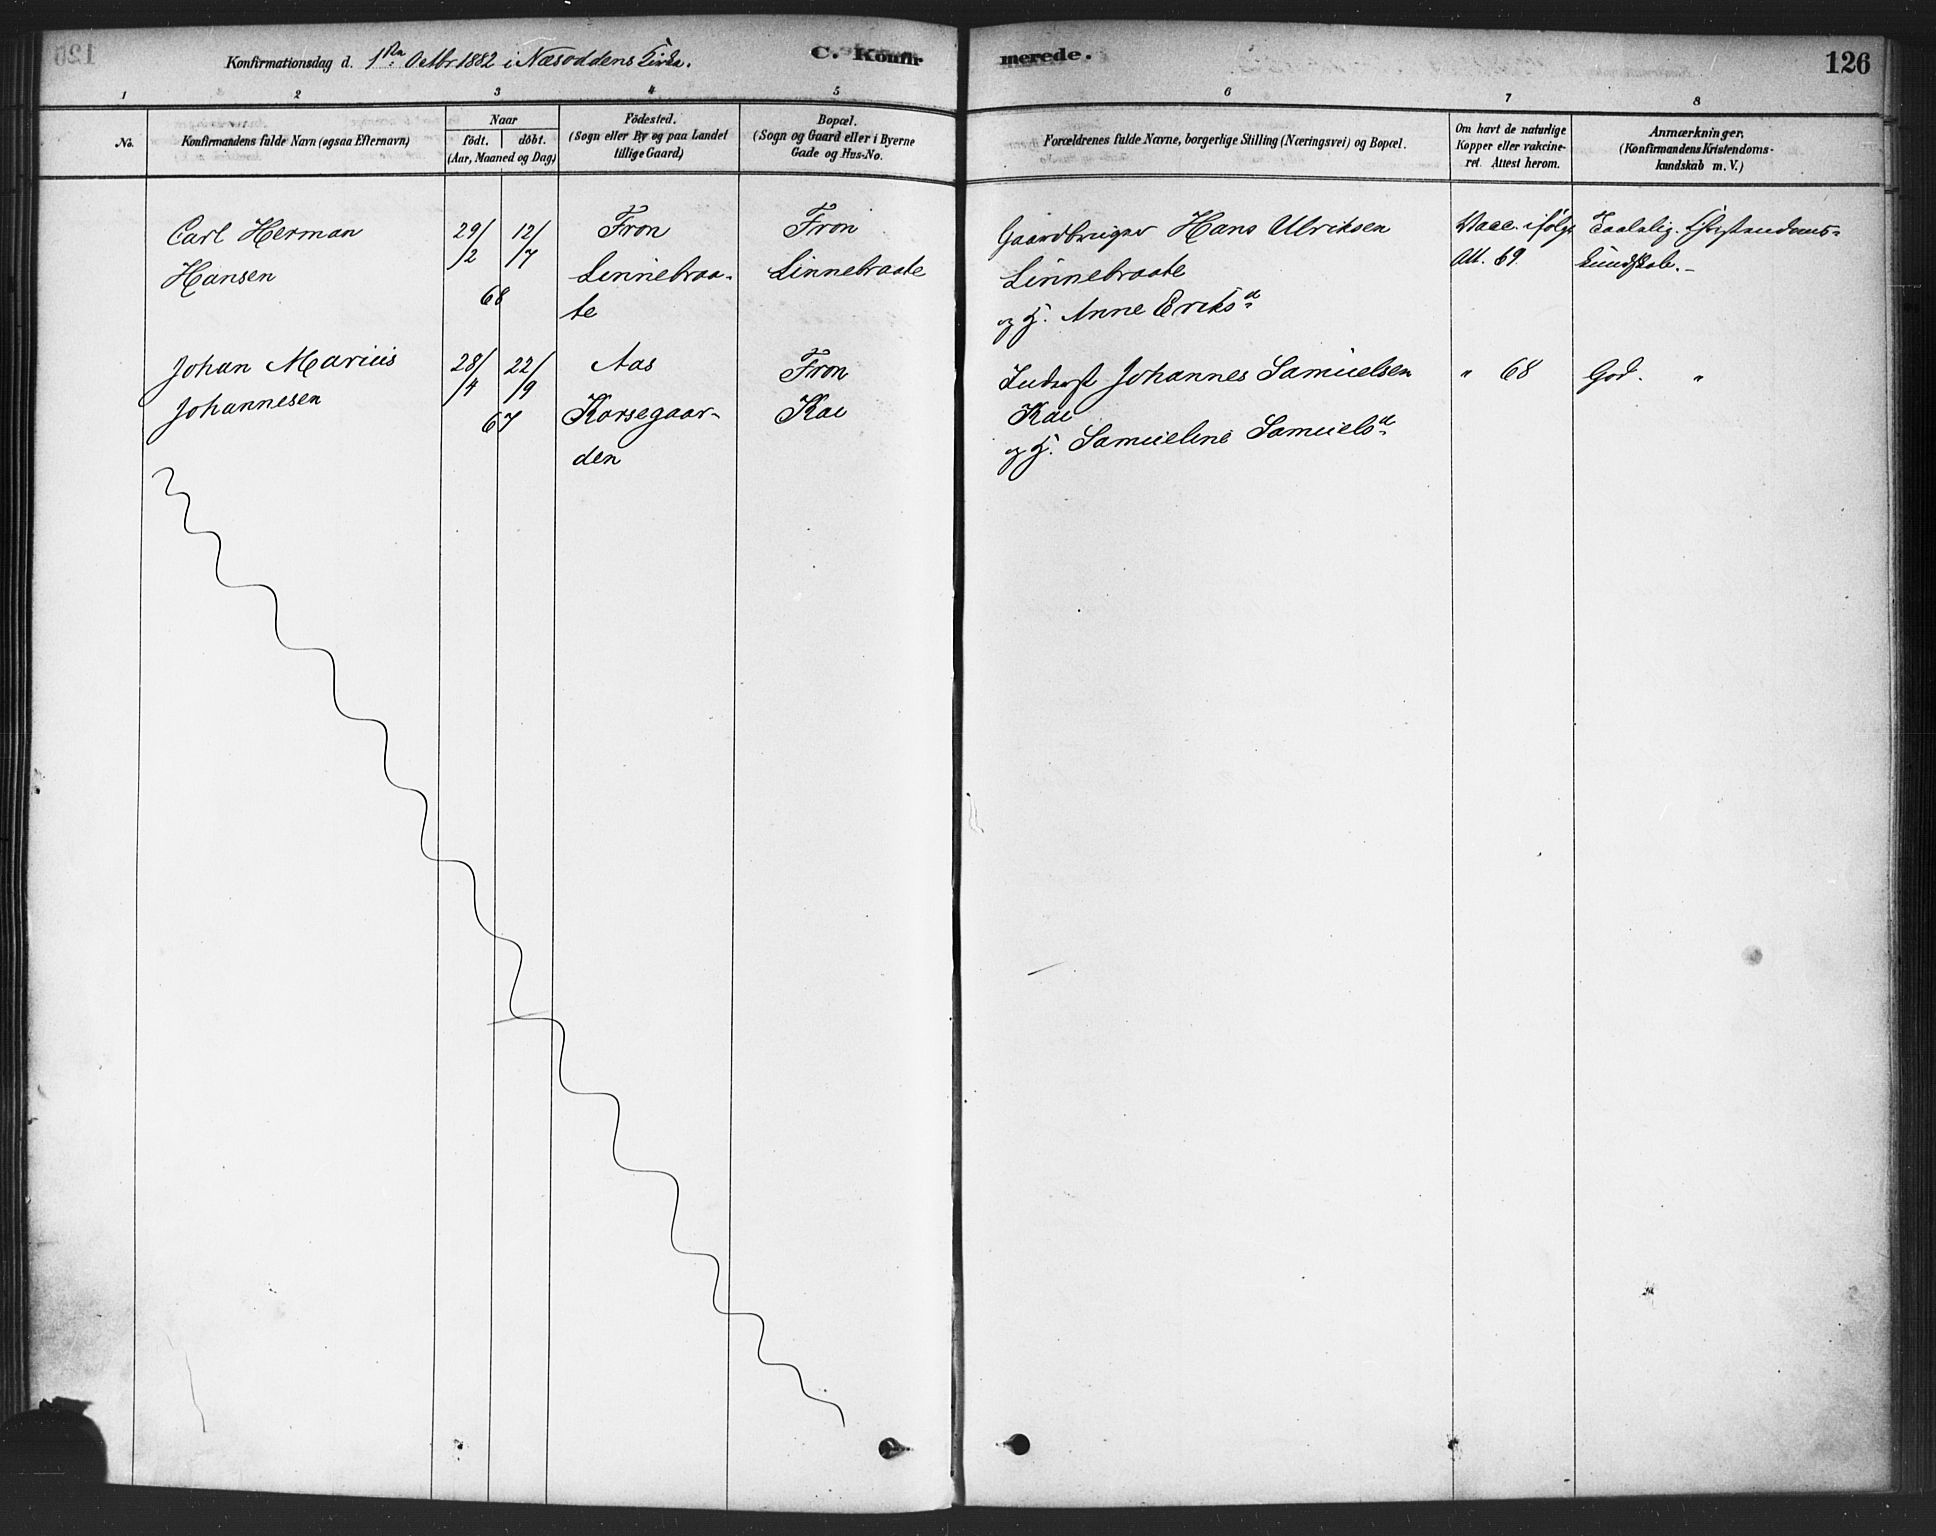 Konfirmationsdag d. 1ste Octbr 1882 i Næsoddens Kirke.
C. Konfirmerede.
126
1 2 3 4 5 6 7 8
No.
Konfirmandens fulde Navn (ogsaa Efternavn)
Naar
födt. döbt.
(Aar, Maaned og Dag)
Födested.
(Sogn eller By og paa Landet
tillige Gaard)
Bopæl.
(Sogn og Gaard eller i Byerne
Gade og Hus-No.
Forældrenes fulde Navne, borgerlige Stilling (Næringsvei) og Bopæl.
Om havt de naturlige
Kopper eller vakcine-
ret. Attest herom.
Anmærkninger.
(Konfirmandens Kristendoms-
kundskab m. V.)
Carl Herman
Hansen
29/2 12/7
68
Fron
Linnebraa-
te
Fron
Linnebraate
Gaardbruger Hans Ulriksen
Linnebraate
og H. Anne Eriksd
Vacc. ifølge
Att. 69
Taalelig. Christendoms-
kundskab. -
Johan Marius
Johannesen
28/4 22/9
67
Aas
Korsegaar-
den
Fron
Kae
Inderst Johannes Samuelsen
Kae
og H. Samueline Samuelsd
" 68
God. "